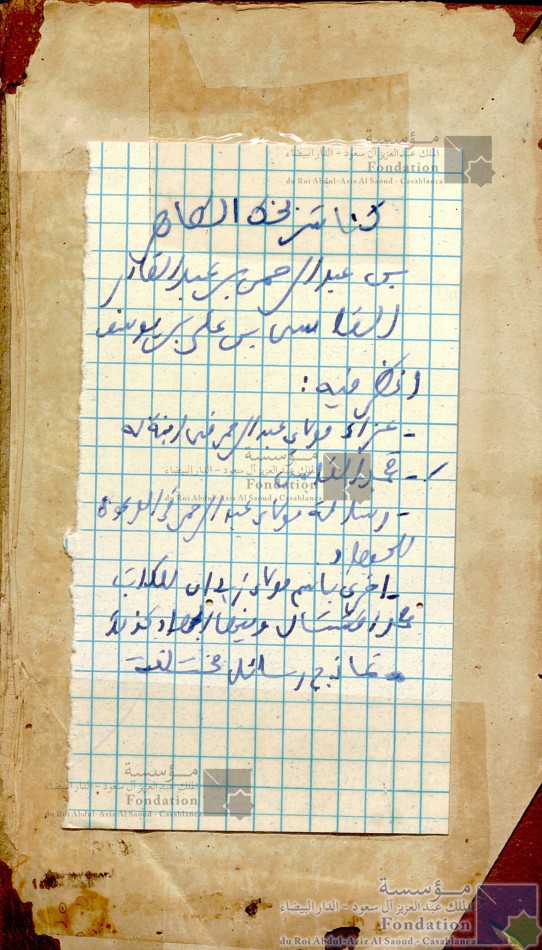 مؤسسة
الملك عبد العزيز آل سعود - الدار البيضاء
Fondation
du Roi Abdul-Aziz Al Saoud - Casablanca
كناش بخط الطاهر
بن عبد الرحمن بن عبد القادر
الفاسي بن علي بن يوسف
انظر فيه :
- عزاء مولاي عبد الرحمن في ابنة له
مؤسسة
الملك عبد العزيز آل سعود - الدار البيضاء
Fondation
du Roi Abdul-Aziz Al Saoud - Casablanca
- رسالة مولاي عبد الرحمن في الدعوة
للجهاد
- اخرى باسم مولاي زيدان للكاتب
وفيها الجهاد كذلك
- نماذج رسائل مختلفة
مؤسسة
الملك عبد العزيز آل سعود - الدار البيضاء
Fondation
du Roi Abdul-Aziz Al Saoud - Casablanca
مؤسسة
الملك عبد العزيز آل سعود - الدار البيضاء
Fondation
du Roi Abdul-Aziz Al Saoud - Casablanca